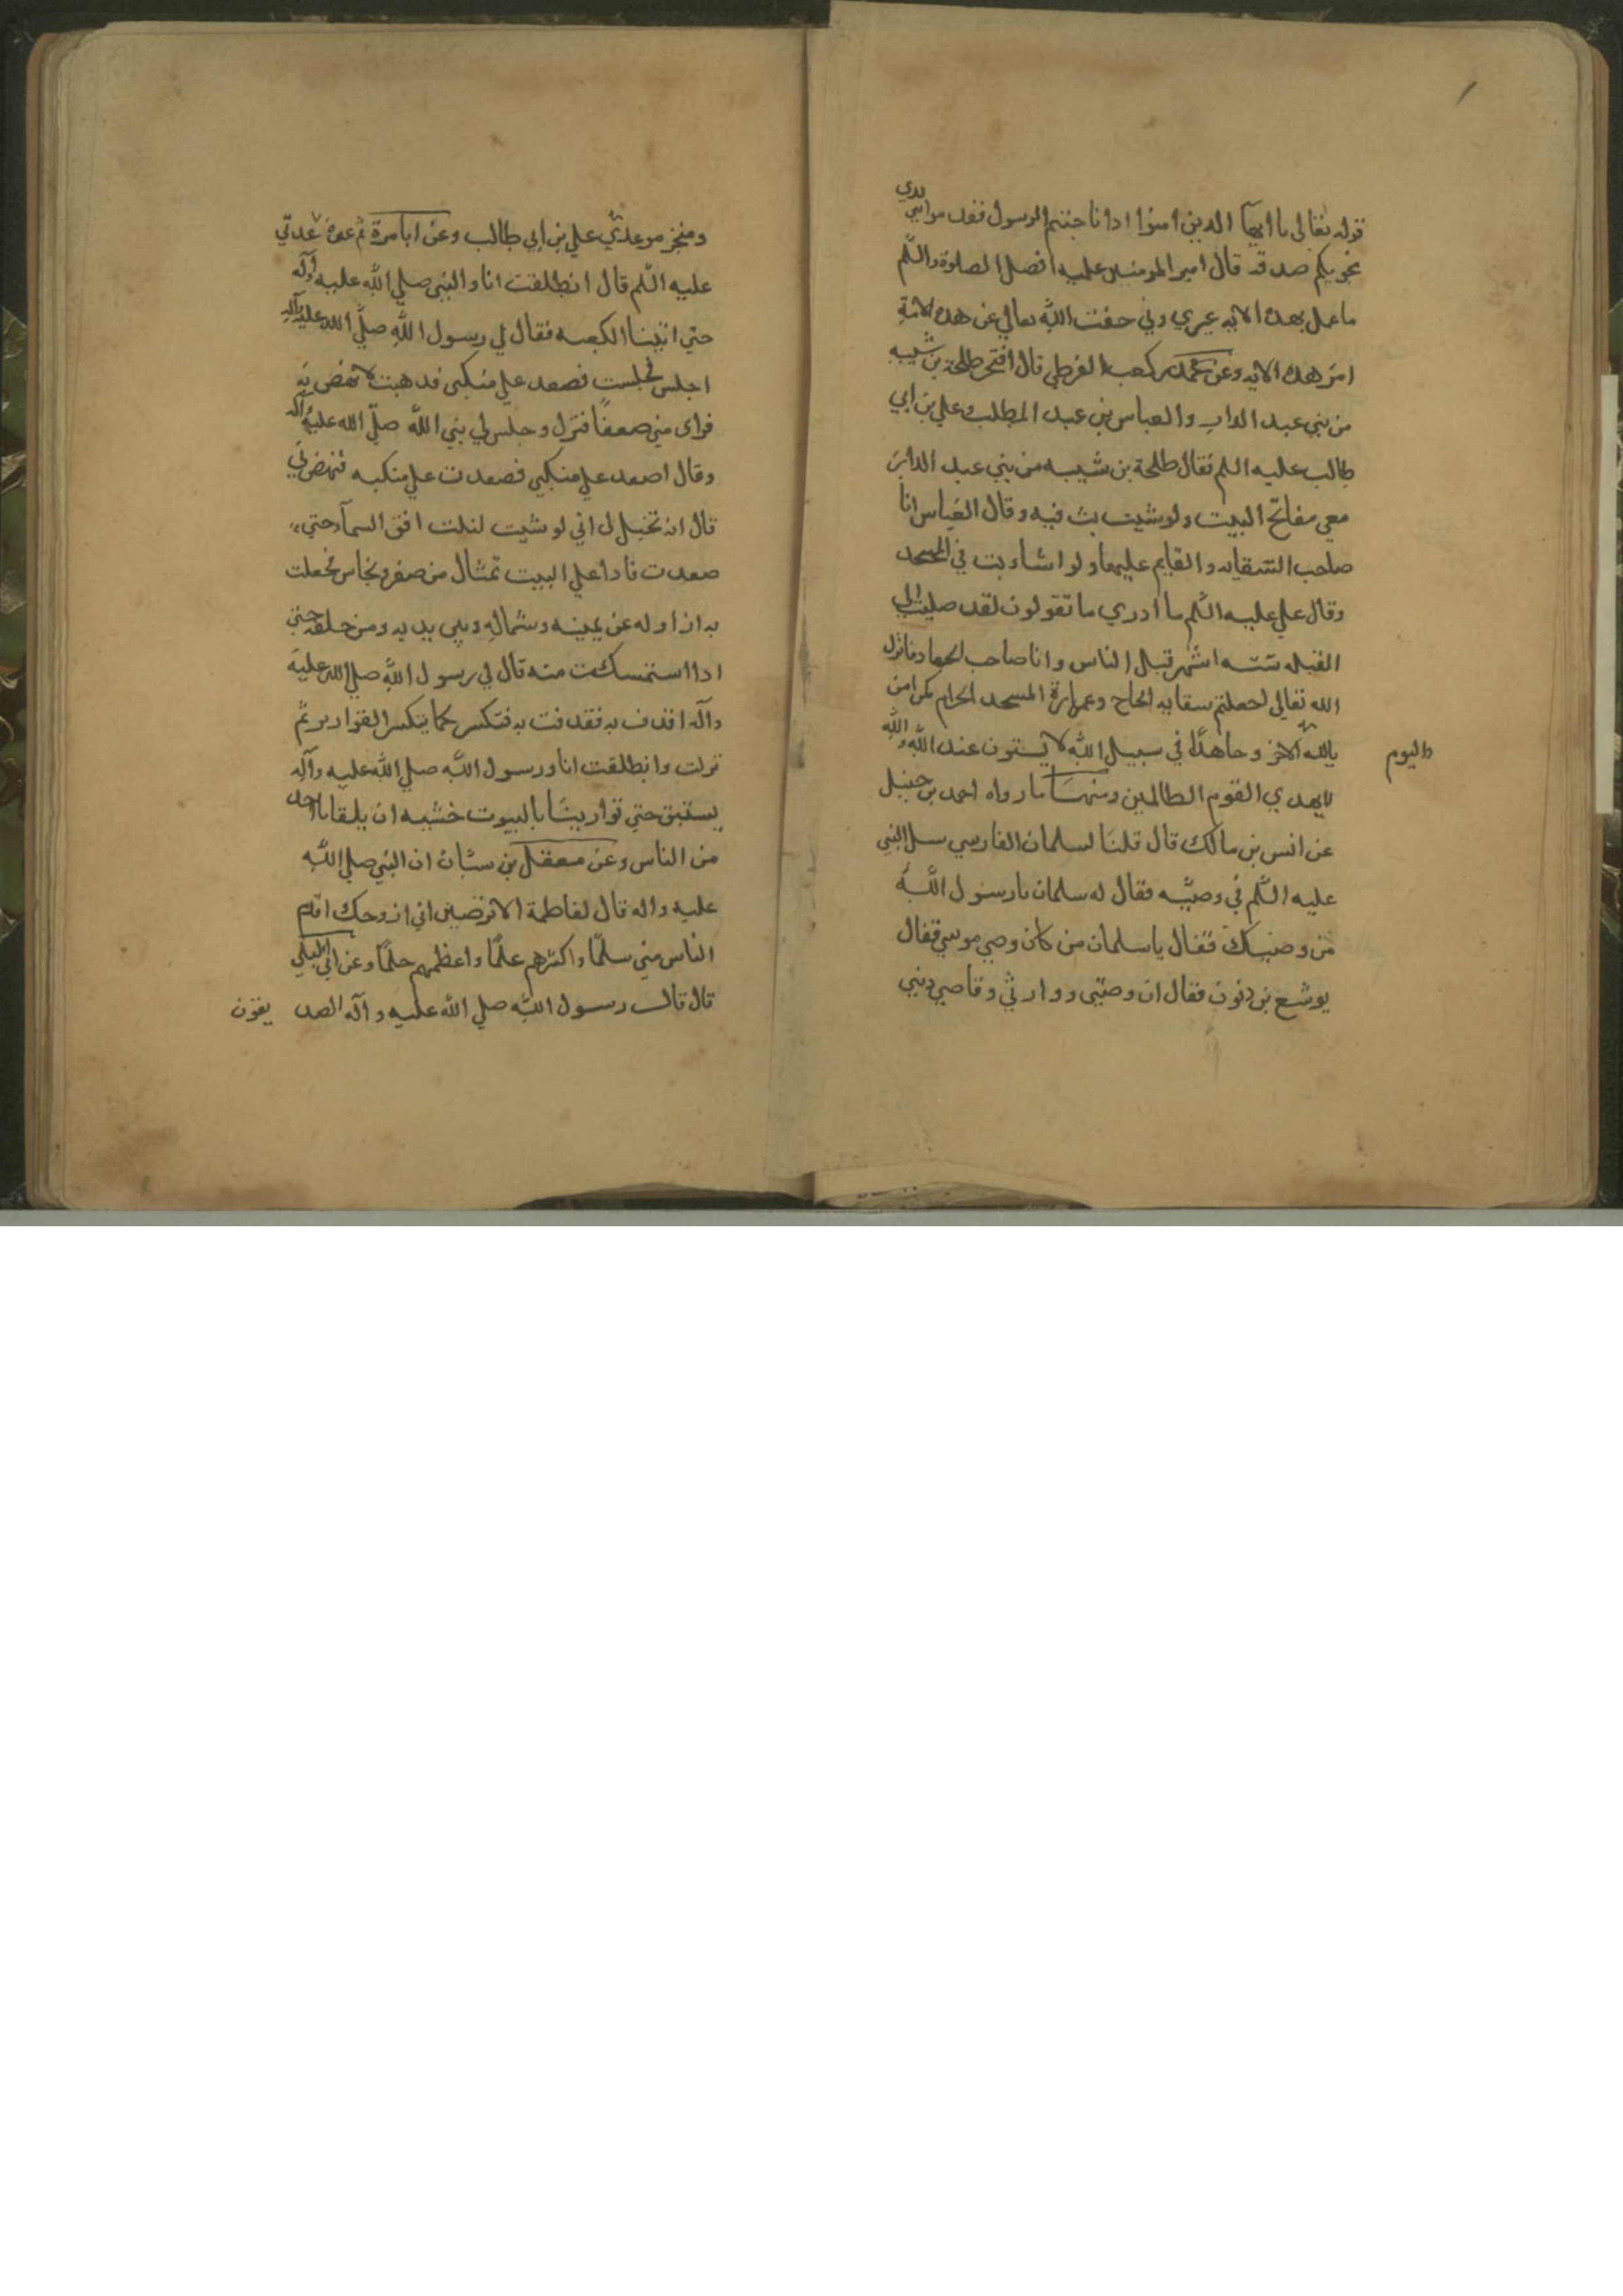 قوله تعالى يا ايها الدين امنوا ادا ناجيتم الرسول فقدموا بين يدي
نجويكم صدقة قال امير المومنين عليه افضل الصلوة والسلم
ما عمل بهده الايه غيري وبي خفف الله تعالي عن هده الامة
امر هده الايه وعن محمد بن كعب القرطي قال افتخر طلحة بن شيبه
من بني عبد الدار والعباس بن عبد المطلب وعلي بن ابي
طالب عليه السلم فقال طلحة بن شيبه من بني عبد الدار
معي مفاتح البيت ولو شيت بت فيه وقال العباس انا
صاحب السقايه والقايم عليها ولو اشاء بت في المسجد
وقال علي عليه السلم ما ادري ما تقولون لقد صليت الي
القبله ستة اشهر قبل الناس وانا صاحب الجهاد فانزل
الله تعالي اجعلتم سقايه الحاج وعمارة المسجد الحرام كمن امن
بالله الاخر وجاهد في سبيل الله لا يستون عند الله والله
واليوم
لا يهدي القوم الظالمين ومنها ما رواه احمد بن حنبل
عن انس بن مالك قال قلنا لسلمان الفارسي سل النبي
عليه السلم في وصيه فقال له سلمان يا رسول الله
من وصيك فقال يا سلمان من كان وصي موسي فقال
يوشع بن نون فقال ان وصيي ووارثي وقاضي ديني
ومنجز موعدي علي بن ابي طالب وعن ابا مرة
عليه السلم قال انطلقت انا والنبي صلي الله عليه وآله
حتي اتينا الكعبه فقال لي رسول الله صلي الله عليه وآله
اجلس فجلست فصعد علي منكبي فدهبت لانهض به
فراى مني ضعفا فنزل وجلس لي نبي الله صلي الله عليه وآله
وقال اصعد علي منكبي فصعدت علي منكبه فنهض بي
قال انه تخيل لي اني لو شيت لنلت افق السمآ حتي
صعدت فادا علي البيت تمثال من صفر ونحاس فجعلت
به ازاوله عن يمينه وشماله وبين يديه ومن خلفه حتي
ادا استمسكت منه قال لي رسول الله صلي الله عليه
وآله اقدف به فقدفت به فتكسر كما يتكسر القوارير ثم
نزلت وانطلقت انا ورسول الله صلي الله عليه وآله
يستبق حتي توارينا بالبيوت خشيه ان يلقانا احد
من الناس وعن معقل بن سنان ان النبي صلي الله
عليه واله قال لفاطمة الا ترضين اني ازوجك اقدم
الناس مني سلما واكثرهم علما واعظمهم حلما وعن ابي ليلي
قال قال رسول الله صلي الله عليه وآله الصد يقون